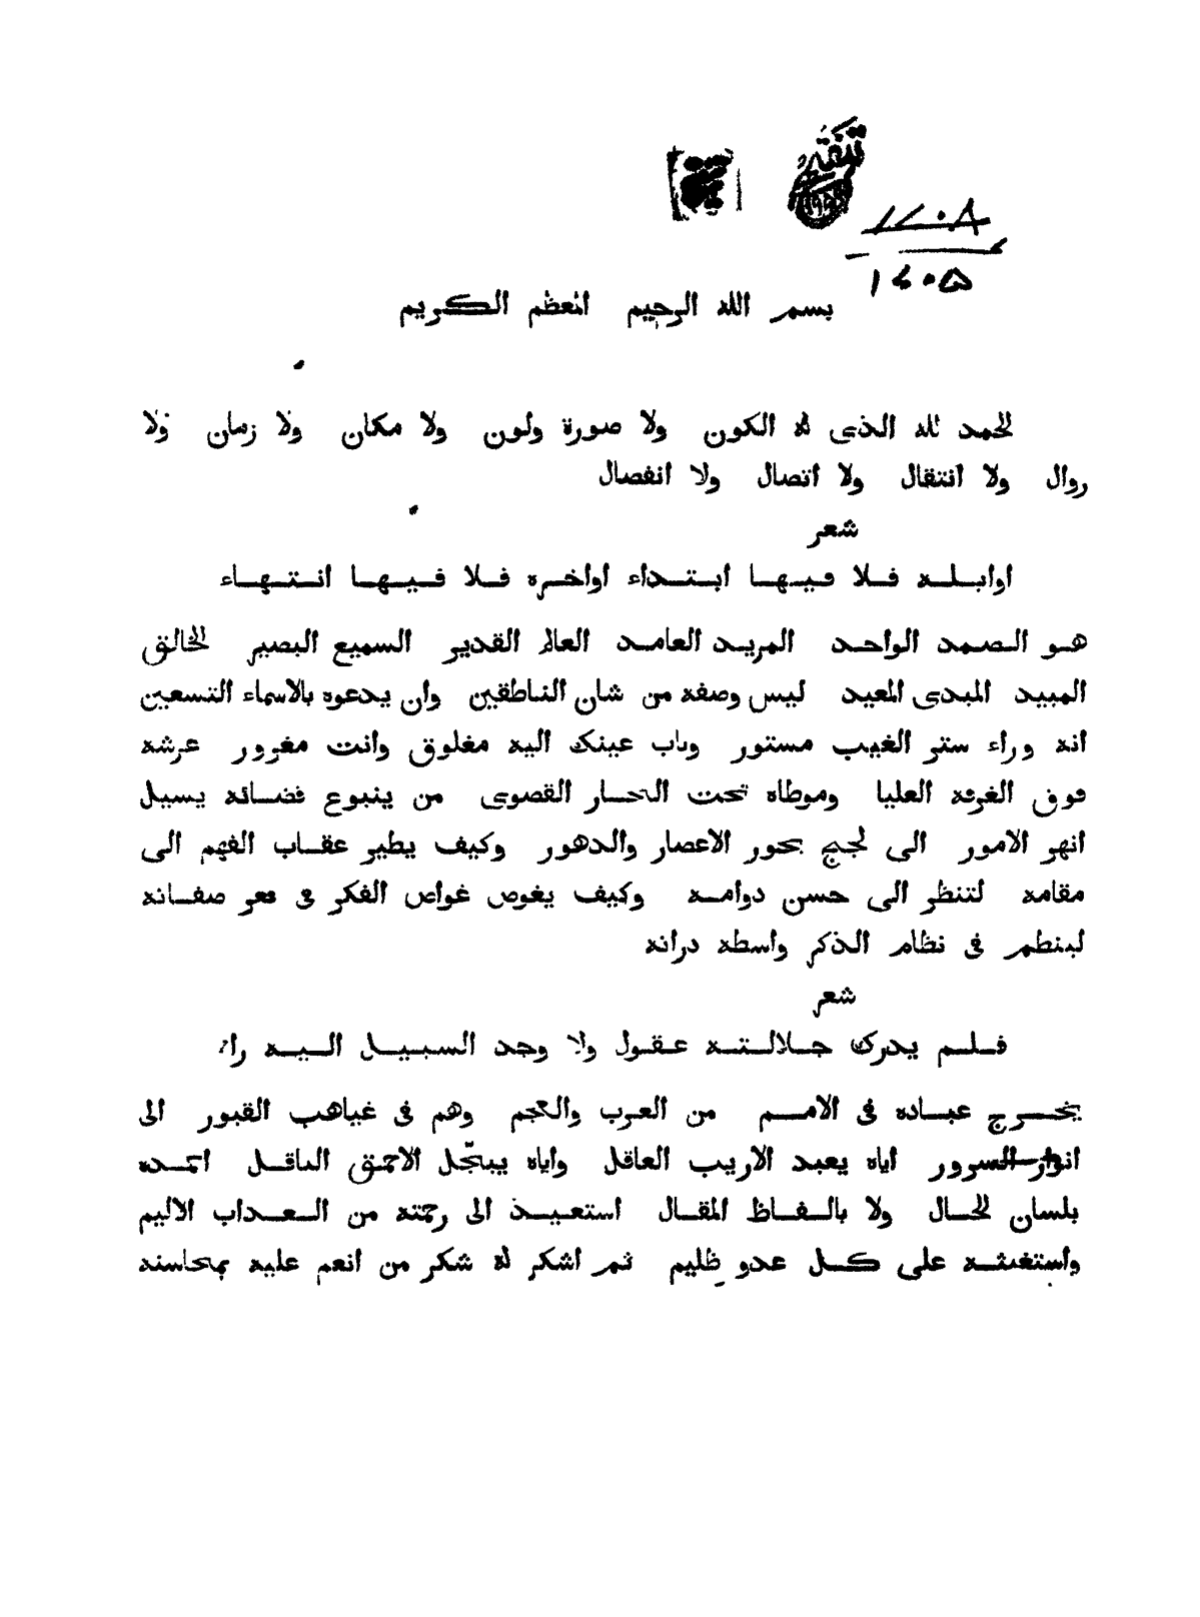 تنقيح
١٤٠٨
١٤٠٥
بسم الله الرحيم المعظم الكريم
الحمد لله الذى له الكون ولا صورة ولون ولا مكان ولا زمان ولا
زوال ولا انتقال ولا اتصال ولا انفصال
شعر
اوايله فلا فيها ابتداء اواخره فلا فيها انتهاء
هو الصمد الواحد المريد العامد العالم القدير السميع البصير الخالق
المبيد المبدى المعيد ليس وصفه من شان الناطقين وان يدعوه بالاسماء التسعين
انه وراء ستر الغيب مستور وباب عينك اليه مغلوق وانت مغرور عرشه
فوق الغرفة العليا وموطاه تحت البحار القصوى من ينبوع قضائه يسيل
انهر الامور الى لجج بحور الاعصار والدهور وكيف يطير عقاب الفهم الى
مقامه لتنظر الى حسن دوامه وكيف يغوص غواص الفكر فى قعر صفاته
لينظم فى نظام الذكر واسطة دراته
شعر
فلم يدرك جلالته عقول ولا وجد السبيل اليه راء
يخرج عباده فى الامم من العرب والعجم وهم فى غياهب القبور الى
انوار السرور اياه يعبد الاريب العاقل واياه يبجّل الاحمق الباقل احمده
بلسان الحال ولا بالفاظ المقال استعيذ الى رحمته من العذاب الاليم
واستغثه على كل عدو ظليم ثم اشكر له شكر من انعم عليه بمحاسنه